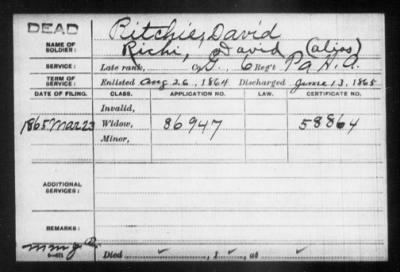 DEAD
NAME OF SOLDIER: Ritchie, David
Richi, David (alias)
SERVICE: Late rank, Co. G, 6 Reg't Pa H. A.
TERM OF SERVICE: Enlisted Aug 26, 1864 Discharged June 13, 1865
DATE OF FILING. CLASS. APPLICATION NO. CERTIFICATE NO.
Invalid,
1865 Mar 23 Widow, 86947 58864
Minor,
ADDITIONAL SERVICES:
REMARKS:
Died , 1 , at